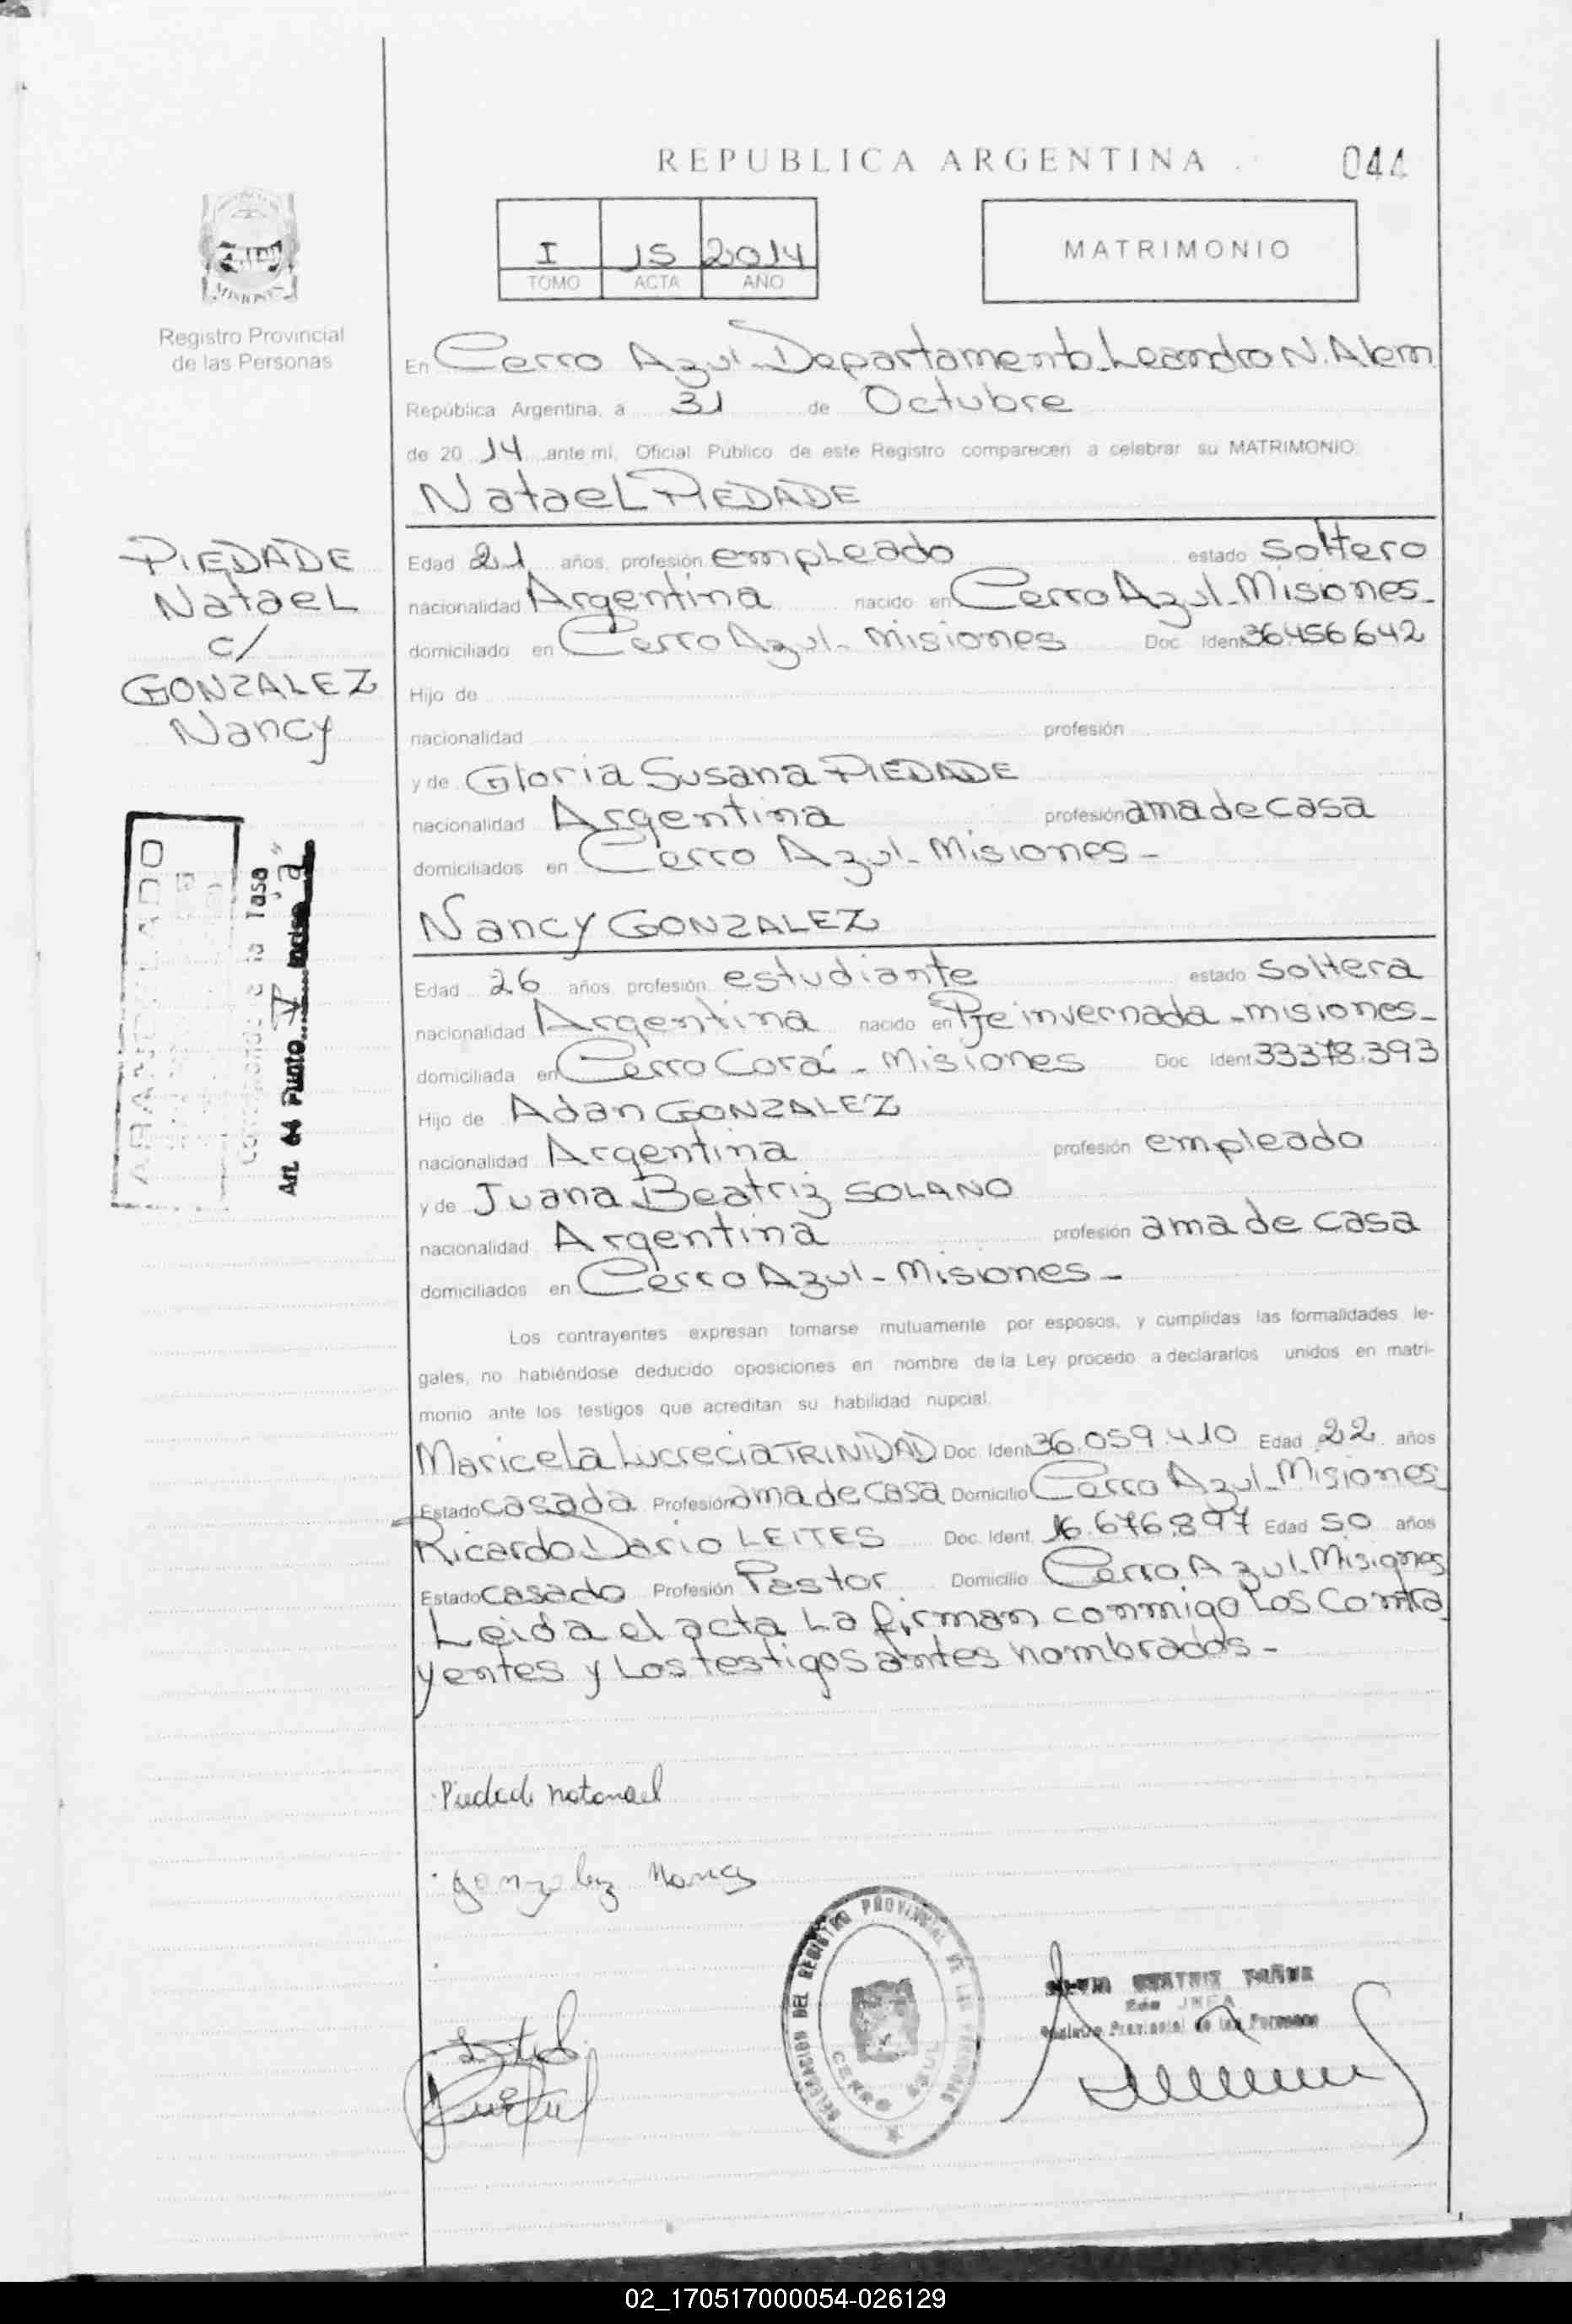 REPUBLICA ARGENTINA
044
I 15 2014
TOMO ACTA AÑO
MATRIMONIO
MISIONES
Registro Provincial
de las Personas
En Cerro Azul-Departamento Leandro N. Alem
República Argentina, a 31 de Octubre
de 20 14 ante mi, Oficial Público de este Registro comparecen a celebrar su MATRIMONIO:
Natael PIEDADE
PIEDADE
Natael
c/
GONZALEZ
Nancy
Edad 21 años, profesión empleado estado soltero
nacionalidad Argentina nacido en Cerro Azul-Misiones-
domiciliado en Cerro Azul-Misiones Doc Ident 36.456.642
Hijo de
nacionalidad profesión
y de Gloria Susana PIEDADE
nacionalidad Argentina profesión ama de casa
domiciliados en Cerro Azul-Misiones-
ARANCELADO
corresponde a la Tasa
Art. 64 Punto V Inciso "a"
Nancy GONZALEZ
Edad 26 años, profesión estudiante estado soltera
nacionalidad Argentina nacido en Pje invernada-misiones-
domiciliada en Cerro Corá-Misiones Doc Ident 33378.393
Hijo de Adan GONZALEZ
nacionalidad Argentina profesión empleado
y de Juana Beatriz SOLANO
nacionalidad Argentina profesión ama de casa
domiciliados en Cerro Azul-Misiones-
Los contrayentes expresan tomarse mutuamente por esposos, y cumplidas las formalidades le-
gales, no habiéndose deducido oposiciones en nombre de la Ley procedo a declararlos unidos en matri-
monio ante los testigos que acreditan su habilidad nupcial.
Maricela Lucrecia TRINIDAD Doc. Ident 36.059.410 Edad 22 años
Estado casada Profesión ama de casa Domicilio Cerro Azul-Misiones
Ricardo Dario LEITES Doc. Ident. 16.676.897 Edad 50 años
Estado casado Profesión Pastor Domicilio Cerro Azul-Misiones
Leida el acta La firman conmigo Los Contra
yentes y Los testigos antes nombrados-
Piedade natanael
gonzalez Nancy
DELEGACION DEL REGISTRO PROVINCIAL DE LAS PERSONAS
CERRO AZUL
Registro Provincial de las Personas
02_170517000054-026129